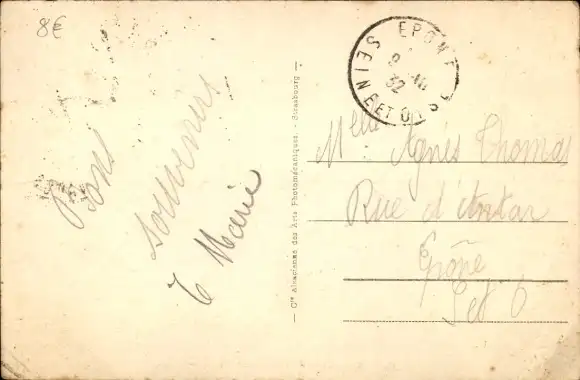 8€
Bons
souvenirs
T Marie
— Cie Alsacienne des Arts Photomécaniques. - Strasbourg —
EPONE
SEINE ET OISE
32
Melle Agnès Thomas
Rue d'
Epône
S et O